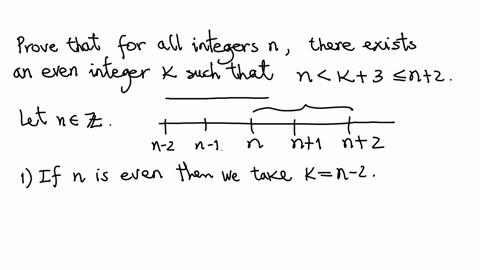 Prove that for all integers n, there exists
an even integer K such that n < K + 3 ≤ n+2.
Let n ∈ ℤ.
n-2 n-1 n n+1 n+2
1) If n is even then we take K = n-2.